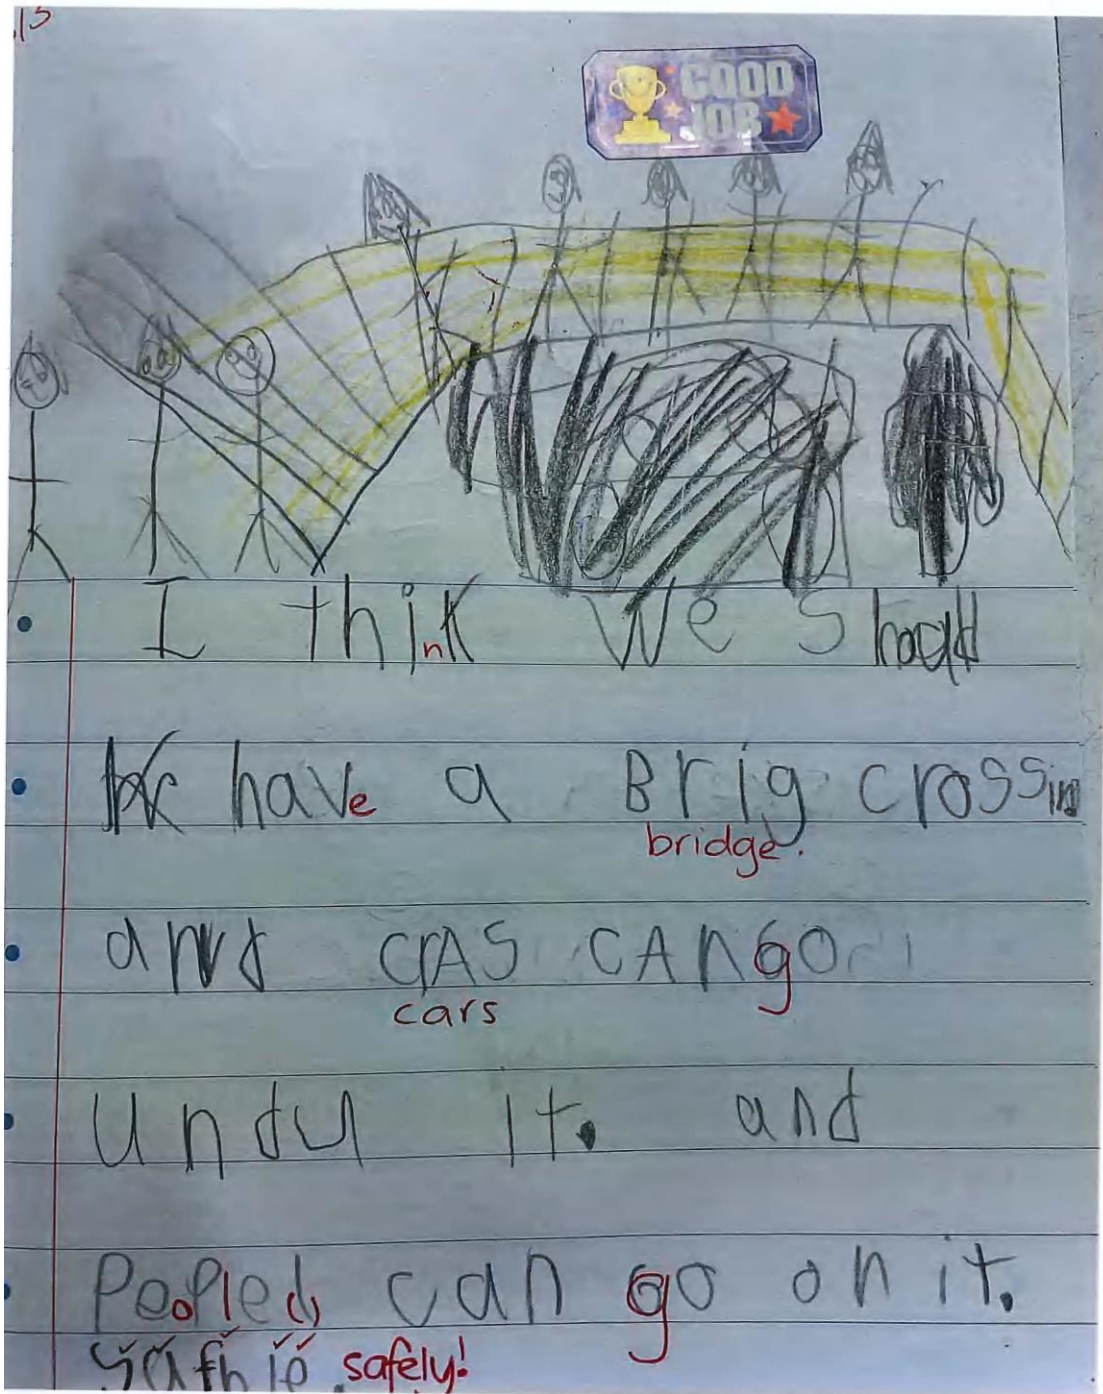 GOOD
JOB
I think We Should
have a Brig crossing
bridge.
and cAS cAn go
cars
undu It. and
People can go on it.
safely!